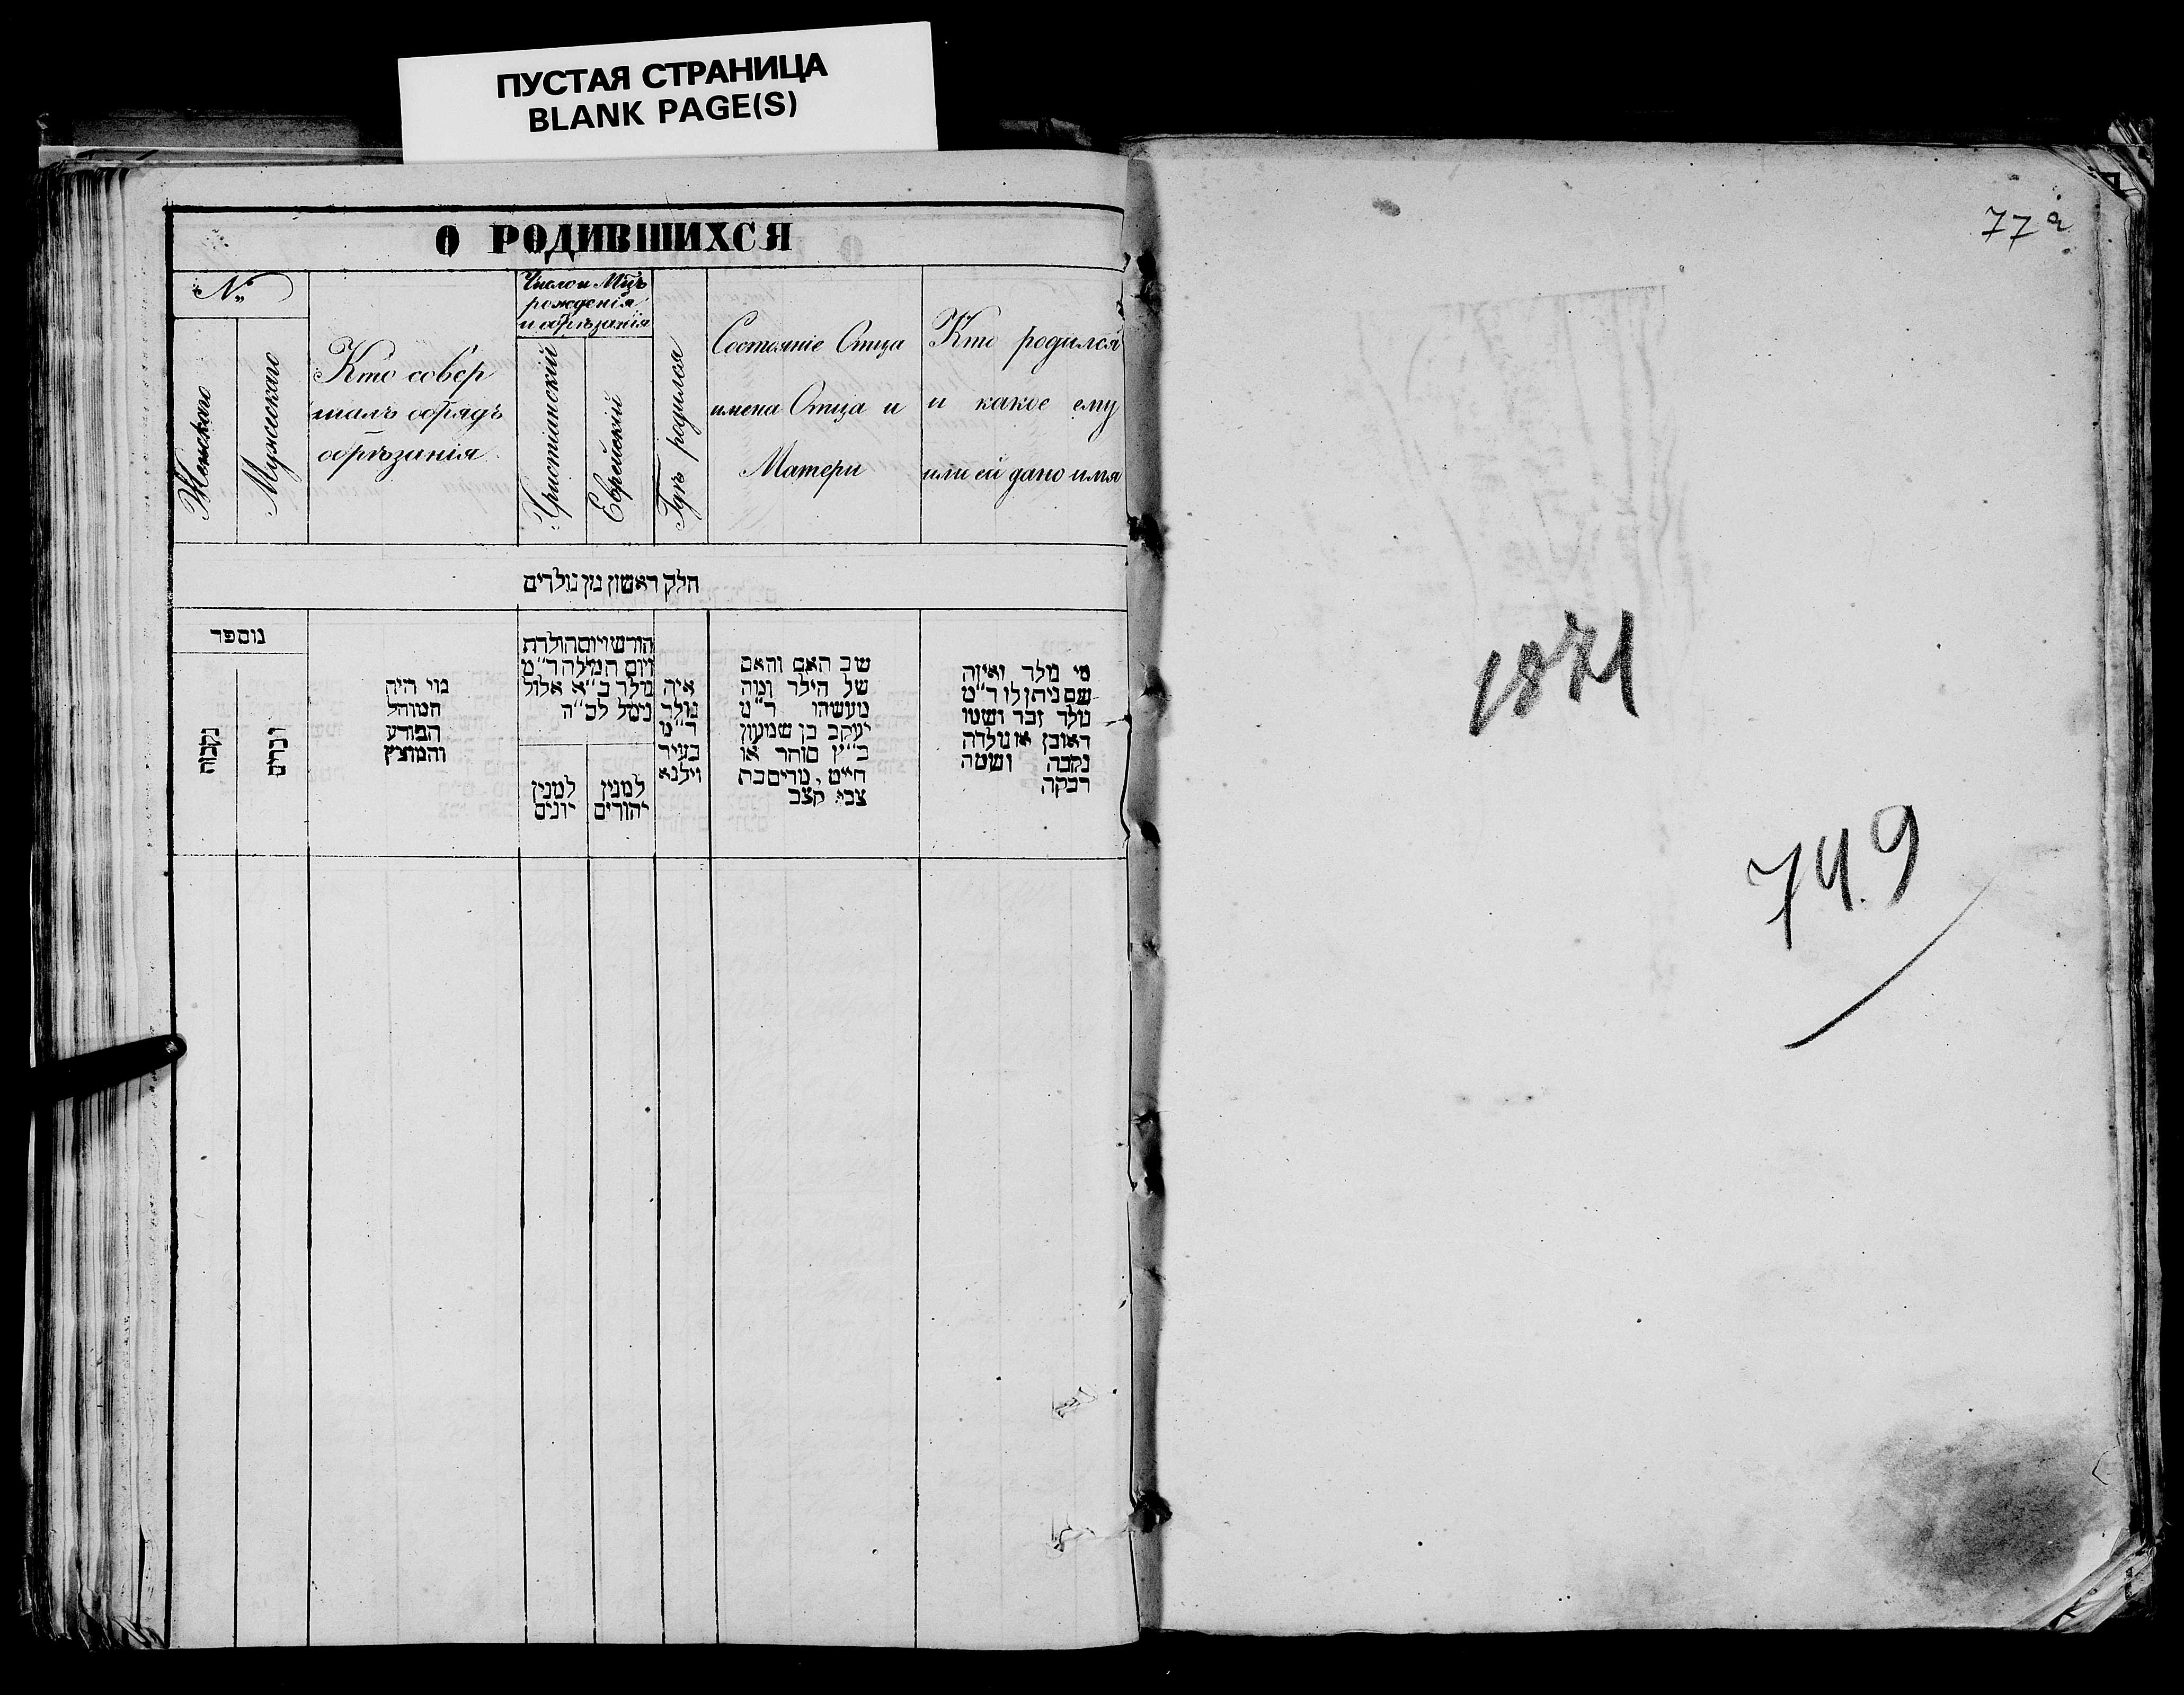 ПУСТАЯ СТРАНИЦА
BLANK PAGE(S)
О РОДИВШИХСЯ
№
Женскаго
Мужескаго
Кто совер
шалъ обрядъ
обрѣзанія
Число и Мцъ
рожденія
и обрѣзанія
Христіанскій
Еврейскій
Гдѣ родился
Состояніе Отца
имена Отца и
Матери
Кто родился
и какое ему
или ей дано имя
חלק ראשון מן נולדים
מספר
נקבות
זכרים
מי היה
המוהל
הפורע
והמוצץ
חודש ויום הולדת
ויום המילה ד״מ
נולד כ״א אלול
נימל לכ״ה
למנין
יונים
למנין
יהודים
איה
נולד
ד״מ
בעיר
וילנא
שם האב והאם
של הילד ומה
מעשהו ד״מ
יעקב בן שמעון
כ״ץ סוחר או
חייט, מרים בת
צבי קצב
מי נולד ואיזה
שם ניתן לו ד״מ
נולד זכר ושמו
ראובן או נולדה
נקבה ושמה
רבקה
77 a
1871
749